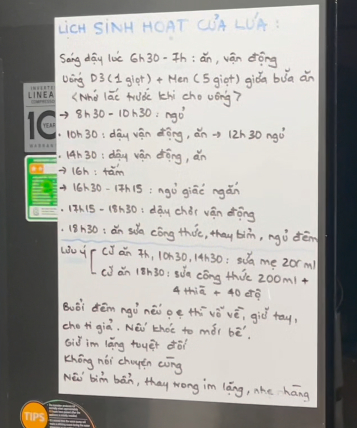 LỊCH SINH HOẠT CỦA LÚA :
Sáng dậy lúc 6h30 - 7h : ăn, vận động
Uống D3 (1 giọt) + Men (5 giọt) giữa bữa ăn
<Nhớ lắc trước khi cho uống>
→ 8h30 - 10h30 : ngủ
. 10h30 : dậy vận động, ăn → 12h30 ngủ
. 14h30 : dậy vận động, ăn
→ 16h : tắm
→ 16h30 - 17h15 : ngủ giấc ngắn
. 17h15 - 18h30 : dậy chơi vận động
. 18h30 : ăn sữa công thức, thay bỉm, ngủ đêm
Lưu ý [ Cữ ăn 7h, 10h30, 14h30 : sữa mẹ 200 ml
Cữ ăn 18h30 : sữa công thức 200ml +
4 thìa + 40 độ
Buổi đêm ngủ nếu ọ ẹ thì vỗ về, giữ tay,
cho ti giả. Nếu khóc to mới bế.
Giữ im lặng tuyệt đối
Không nói chuyện cùng
Nếu bỉm bẩn, thay trong im lặng, nhẹ nhàng
INVERTER
LINEA
COMPRESSOR
10
YEAR
TIPS